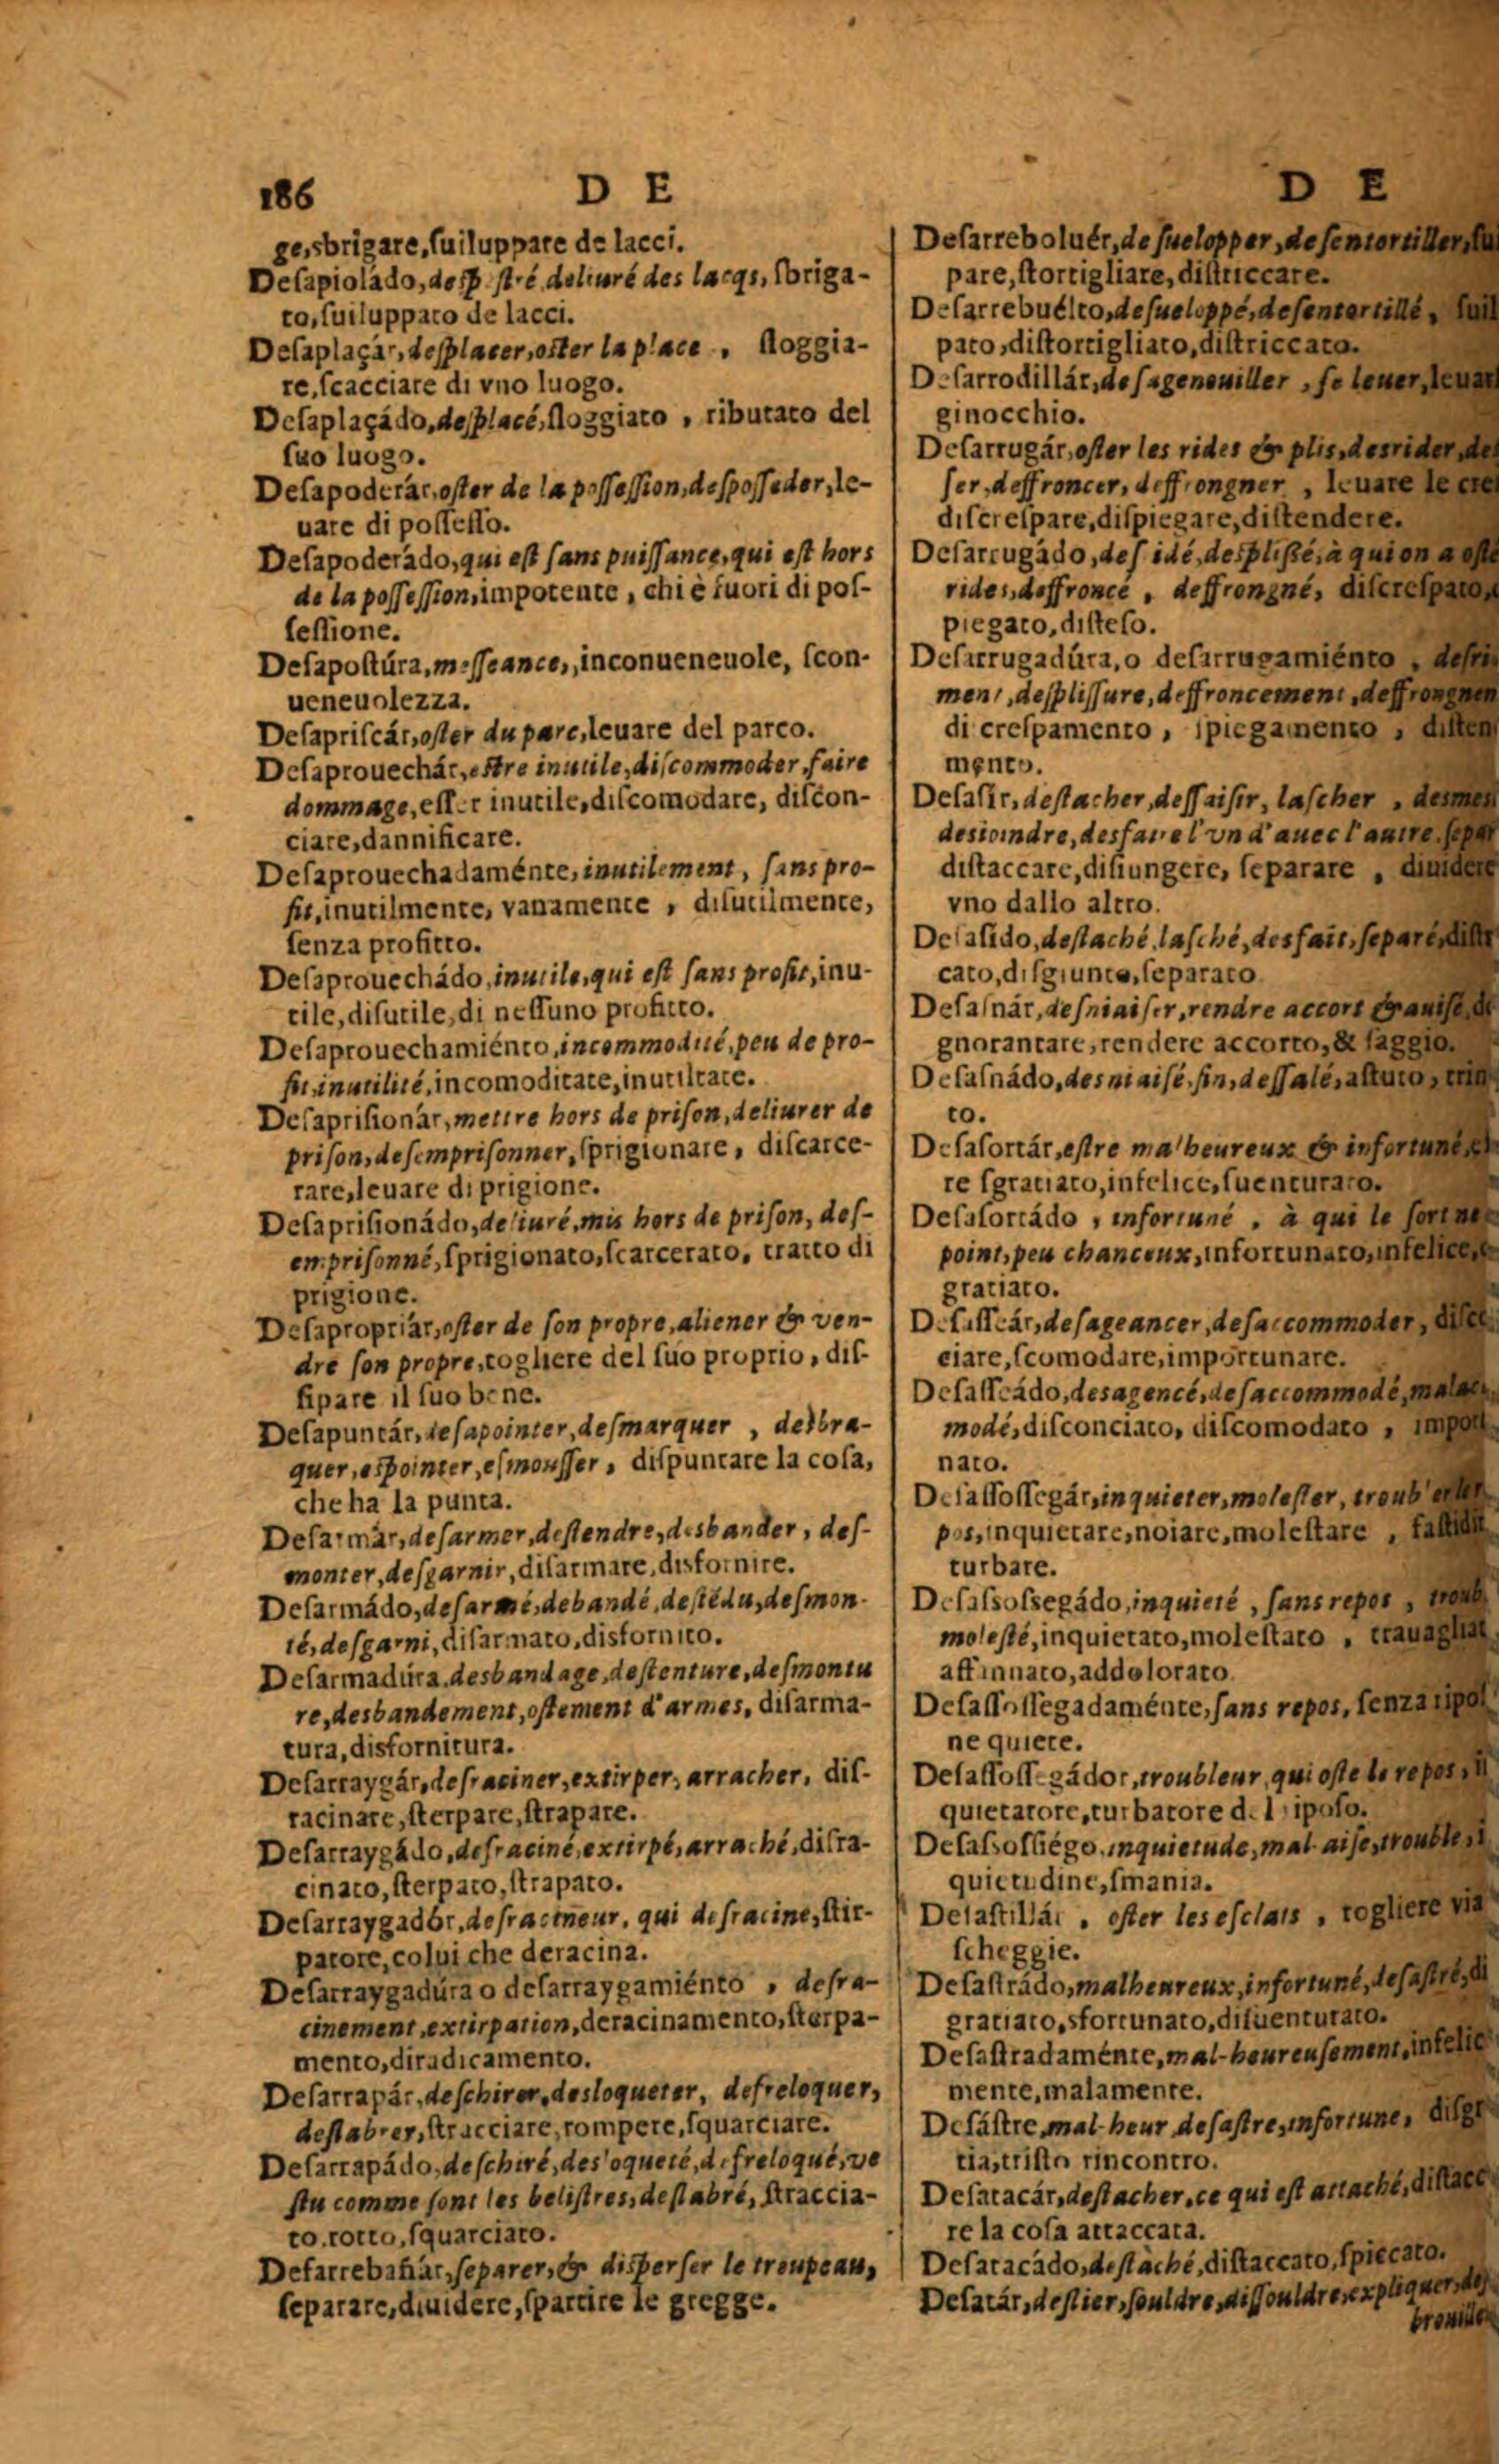 186 D E
ge,sbrigare,ſuiluppare de lacci.
Deſapioládo, deliuré des lacqs, ſbriga-
to,ſuiluppato de lacci.
Deſaplaçár,deſplacer,oſter la place , ſloggia-
re,ſcacciare di vno luogo.
Deſaplaçádo,deſplacé,ſloggiato ,ributato del
ſuo luogo.
Deſapoderár,oſter de la poſſeſſion,deſpoſſeder,le-
uare di poſſeſſo.
Deſapoderádo,qui eſt ſans puiſſance,qui eſt hors
de la poſſeſſion,impotente , chi è fuori di poſ-
ſeſſione.
Deſapoſtúra,meſſeance,,inconueneuole, ſcon-
ueneuolezza.
Deſapriſcár,oſter du parc,leuare del parco.
Deſaprouechár,eſtre inutile,diſcommoder,faire
dommage,eſſer inutile,diſcomodare, diſcon-
ciare,dannificare.
Deſaprouechadaménte,inutilement, ſans pro-
fit,inutilmente, vanamente , diſutilmente,
ſenza profitto.
Deſaprouechádo,inutile,qui eſt ſans profit,inu-
tile,diſutile,di neſſuno profitto.
Deſaprouechamiénto,incommodité,peu de pro-
fit,inutilité,incomoditate,inutiltate.
Deſapriſionár,mettre hors de priſon,deliurer de
priſon,deſempriſonner,ſprigionare, diſcarce-
rare,leuare di prigione.
Deſapriſionádo,deliuré,mis hors de priſon, deſ-
empriſonné,ſprigionato,ſcarcerato, tratto di
prigione.
Deſapropriár,oſter de ſon propre,aliener & ven-
dre ſon propre,togliere del ſuo proprio, diſ-
ſipare il ſuo bene.
Deſapuntár,deſapointer,deſmarquer , desbra-
quer,eſpointer,eſmouſſer, diſpuntare la coſa,
che ha la punta.
Deſarmár,deſarmer,deſtendre,desbander, deſ-
monter,deſgarnir,diſarmare,disfornire.
Deſarmádo,deſarmé,debandé,deſtédu,deſmon-
té,deſgarni,diſarmato,disfornito.
Deſarmadúra,desbandage,deſtenture,deſmontu
re,desbandement,oſtement d'armes, diſarma-
tura,disfornitura.
Deſarraygár,deſraciner,extirper,arracher, diſ-
racinare,ſterpare,ſtrapare.
Deſarraygádo,deſraciné,extirpé,arraché,diſra-
cinato,ſterpato,ſtrapato.
Deſarraygadór,deſracineur, qui deſracine,ſtir-
patore,colui che deracina.
Deſarraygadúra o deſarraygamiénto , deſra-
cinement,extirpation,deracinamento,ſterpa-
mento,diradicamento.
Deſarrapár,deſchirer,desloqueter, defreloquer,
deſlabrer,ſtracciare,rompere,ſquarciare.
Deſarrapádo,deſchiré,desloqueté,defreloqué,ve
ſtu comme ſont les beliſtres,deſlabré, ſtraccia-
to,rotto,ſquarciato.
Deſarrebañár,ſeparer,& diſperſer le troupeau,
ſeparare,diuidere,ſpartire le gregge.
D E
Deſarreboluér,deſuelopper,deſentortiller,ſui
pare,ſtortigliare,diſtriccare.
Deſarrebuélto,deſueloppé,deſentortillé, ſuil
pato,diſtortigliato,diſtriccato.
Deſarrodillár,deſagenouiller , ſe leuer,leuar
ginocchio.
Deſarrugár,oſter les rides & plis,desrider,
ſer,deffroncer, deffrongner , leuare le cre
diſcreſpare,diſpiegare,diſtendere.
Deſarrugádo, deſpliſſé,à qui on a oſté
rides,deffroncé , deffrongné, diſcreſpato,
piegato,diſteſo.
Deſarrugadúra,o deſarrugamiénto , deſri
ment,deſpliſſure,deffroncement,deffrongnen
di creſpamento , ſpiegamento , diſten
mento.
Deſaſir,deſtacher,deſſaiſir, laſcher , desmeſ
desioindre,desfaire l'vn d'auec l'autre,ſepar
diſtaccare,diſiungere, ſeparare , diuidere
vno dallo altro.
Deſaſido,deſtaché,laſché,desfait,ſeparé,diſtr
cato,diſgiunto,ſeparato
Deſaſnár,deſniaiſer,rendre accort & auiſé,di
gnorantare,rendere accorto,& ſaggio.
Deſaſnádo,desniaiſé,fin,deſſalé,aſtuto, trin
to.
Deſaſortár,eſtre malheureux & infortuné,
re ſgratiato,infelice,ſuenturato.
Deſaſortádo , infortuné , à qui le ſort ne
point,peu chanceux,infortunato,infelice,
gratiato.
Deſaſſeár,deſageancer,deſaccommoder, diſc
ciare,ſcomodare,importunare.
Deſaſſeádo,desagencé,deſaccommodé,
modé,diſconciato, diſcomodato , import
nato.
Deſaſſoſſegár,inquieter,moleſter, troubler
pos,inquietare,noiare,moleſtare , faſtidi
turbare.
Deſaſsoſsegádo,inquieté , ſans repos , troub
moleſté,inquietato,moleſtato , trauagliat
affannato,addolorato
Deſaſſoſſegadaménte,ſans repos, ſenza ripoſ
ne quiete.
Deſaſſoſſegádor,troubleur,qui oſte le repos,
quietatore,turbatore del ripoſo.
Deſaſsoſſiégo,inquietude,mal-aiſe,trouble,i
quietudine,ſmania.
Deſaſtillár , oſter les eſclats , togliere via
ſcheggie.
Deſaſtrádo,malheureux,infortuné,deſaſtré,di
gratiato,sfortunato,diſuenturato.
Deſaſtradaménte,mal-heureuſement,infelic
mente,malamente.
Deſáſtre,mal-heur,deſaſtre,infortune, diſgr
tia,triſto rincontro.
Deſatacár,deſtacher,ce qui eſt attaché,diſtacc
re la coſa attaccata.
Deſatacádo,deſtàché,diſtaccato,ſpiccato.
Deſatár,deſlier,ſouldre,diſſouldre,expliquer,deſ
brouille